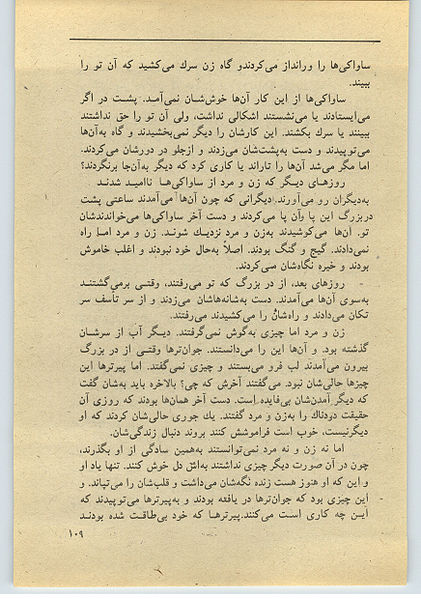 ساواکی‌ها را ورانداز می‌کردندو گاه زن سرك می‌کشید که آن تو را
ببیند.
ساواکی‌ها از این کار آن‌ها خوش‌شان نمی‌آمد. پشت در اگر
می‌ایستادند یا می‌نشستند اشکالی نداشت، ولی آن تو را حق نداشتند
ببینند یا سرك بکشند. این کارشان را دیگر نمی‌بخشیدند و گاه به‌آن‌ها
می‌توپیدند و دست به‌پشت‌شان می‌زدند و ازجلو در دورشان می‌کردند.
اما مگر می‌شد آن‌ها را تاراند یا کاری کرد که دیگر به‌آن‌جا برنگردند؟
روزهای دیگر که زن و مرد از ساواکی‌ها ناامید شدند
به‌دیگران رو می‌آورند. دیگرانی که چون آن‌ها می‌آمدند ساعتی پشت
دربزرگ این پا وآن پا می‌کردند و دست آخر ساواکی‌ها می‌خواندندشان
تو. آن‌ها می‌کوشیدند به‌زن و مرد نزدیك شوند. زن و مرد اما راه
نمی‌دادند. گیج و گنگ بودند. اصلاً به‌حال خود نبودند و اغلب خاموش
بودند و خیره نگاه‌شان می‌کردند.
روزهای بعد، از در بزرگ که تو می‌رفتند، وقتی برمی‌گشتند
به‌سوی آن‌ها می‌آمدند. دست به‌شانه‌هاشان می‌زدند و از سر تأسف سر
تکان می‌دادند و راه‌شان را می‌کشیدند می‌رفتند.
زن و مرد اما چیزی به‌گوش نمی‌گرفتند. دیگر آب از سرشان
گذشته بود. و آن‌ها این را می‌دانستند. جوان‌ترها وقتی از در بزرگ
بیرون می‌آمدند لب فرو می‌بستند و چیزی نمی‌گفتند. اما پیرترها این
چیزها حالی‌شان نبود. می‌گفتند آخرش که چی؟ بالاخره باید به‌شان گفت
که دیگر آمدن‌شان بی‌فایده است. دست آخر همان‌ها بودند که روزی آن
حقیقت دردناك را به‌زن و مرد گفتند. یك جوری حالی‌شان کردند که او
دیگرنیست، خوب است فراموشش کنند بروند دنبال زندگی‌شان.
اما نه زن و نه مرد نمی‌توانستند به‌همین سادگی از او بگذرند،
چون در آن صورت دیگر چیزی نداشتند به‌اش دل خوش کنند. تنها یاد او
و این که او هنوز هست زنده نگه‌شان می‌داشت و قلب‌شان را می‌تپاند. و
این چیزی بود که جوان‌ترها در یافته بودند و به‌پیرترها می‌توپیدند که
این چه کاری است می‌کنند. پیرترها که خود بی‌طاقت شده بودند
۱۰۹